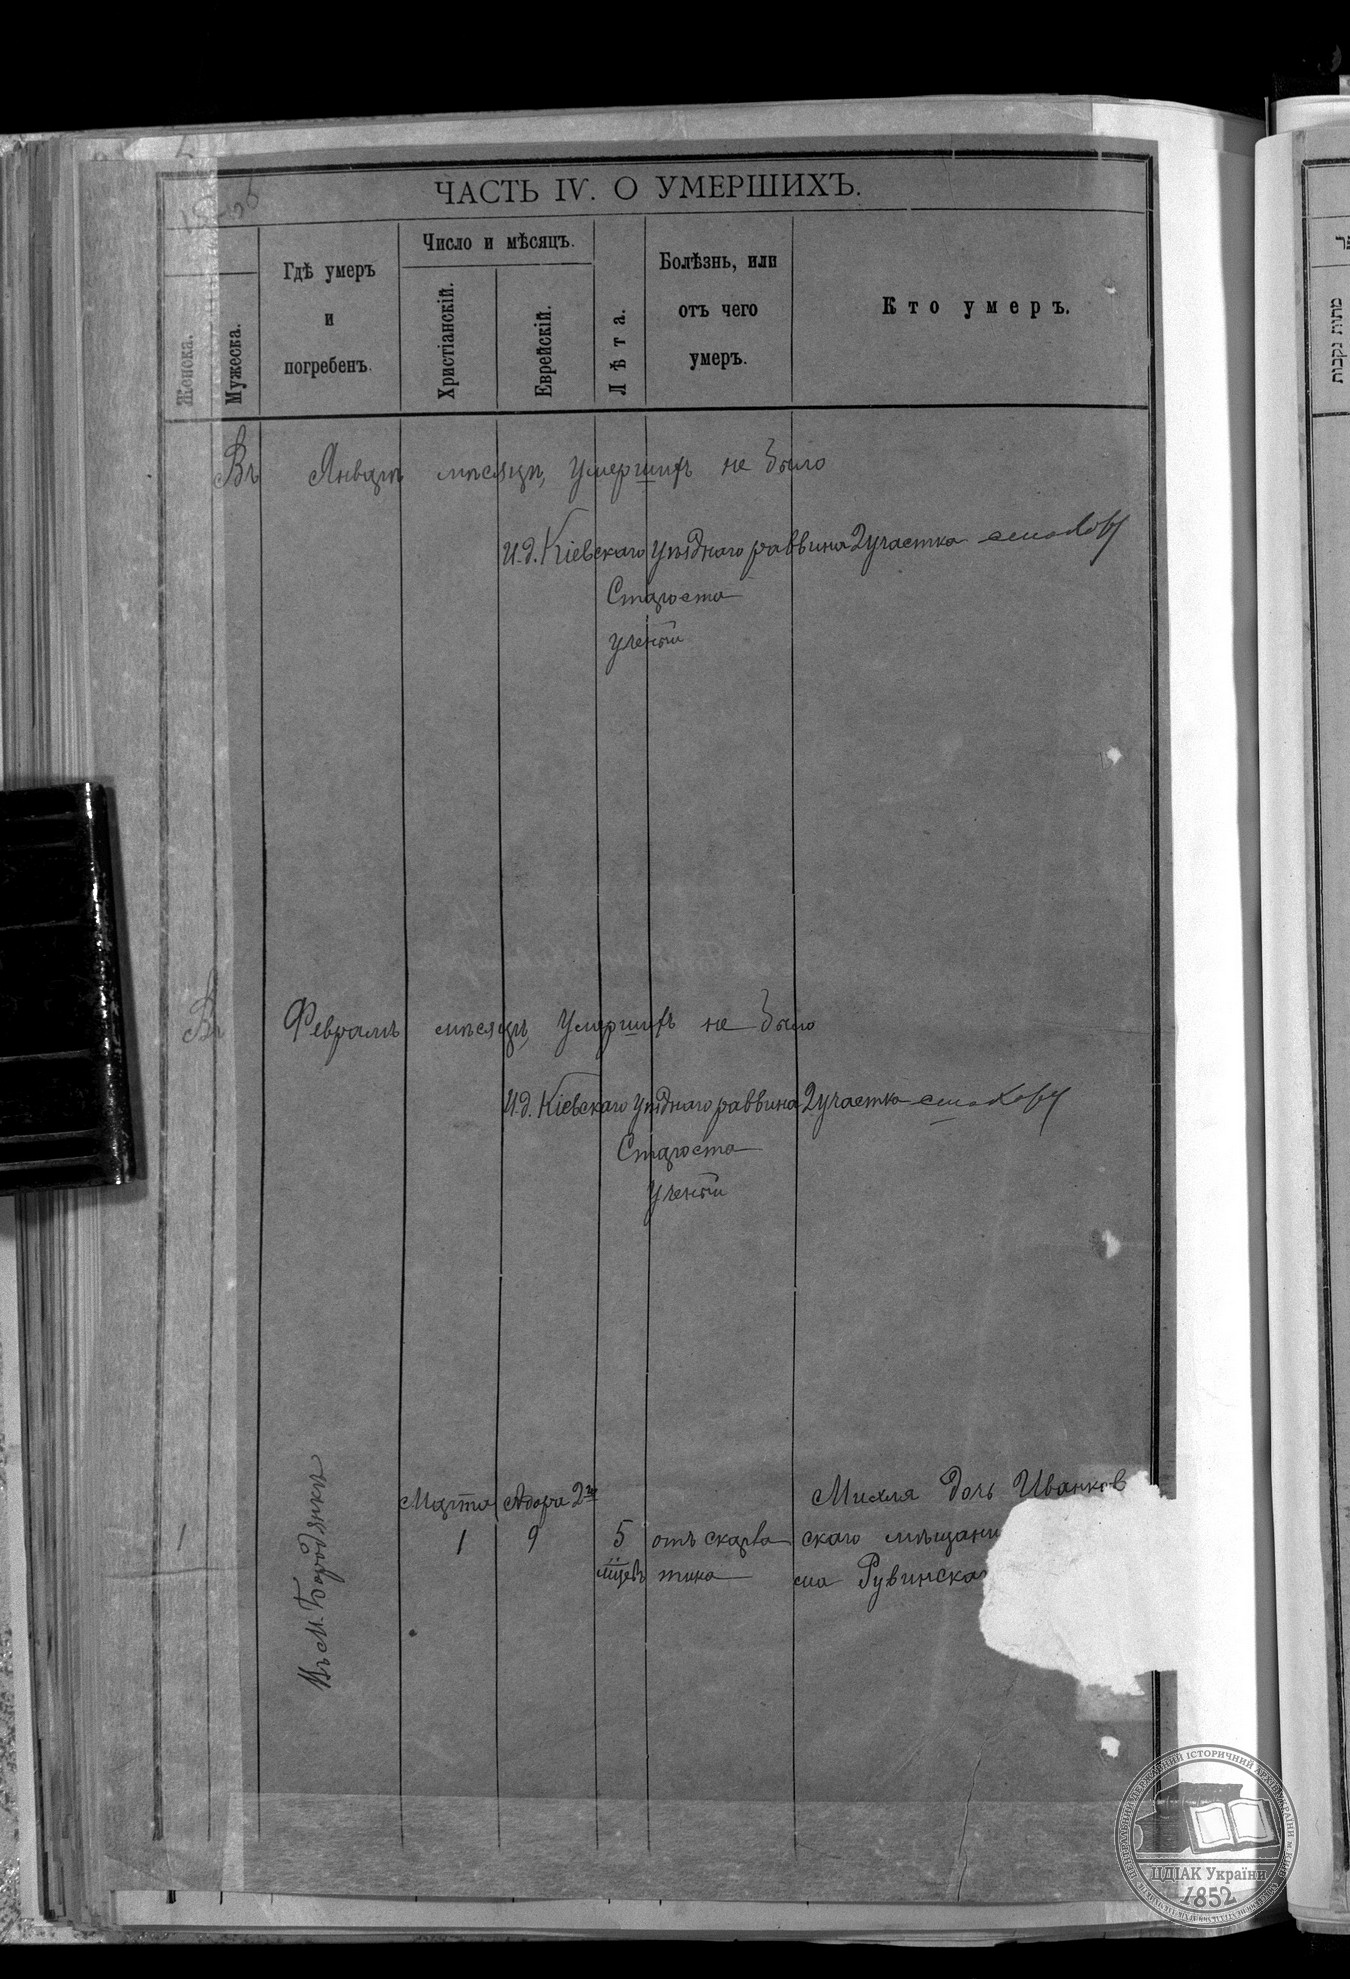 ЧАСТЬ IV. О УМЕРШИХЪ.
Женска.
Мужеска.
Гдѣ умеръ
и
погребенъ.
Число и мѣсяцъ.
Христіанскій.
Еврейскій.
Лѣта.
Болѣзнь, или
отъ чего
умеръ.
Кто умеръ.
Въ Январѣ мѣсяцѣ, умершихъ не было
И.д. Кіевскаго уѣзднаго раввина 2 участка
Староста
Ученый
Въ Февралѣ мѣсяцѣ, умершихъ не было
И.д. Кіевскаго уѣзднаго раввина 2 участка
Староста
Ученый
1
Въ м. Бородянкѣ
Марта
1
Адара 2го
9
5
мѣсяц
отъ скарла
тина
Михля дочь Иванков
скаго мѣщани
ма Рувинска
מתות נקבות
ЦЕНТРАЛЬНИЙ ДЕРЖАВНИЙ ІСТОРИЧНИЙ АРХІВ УКРАЇНИ м.КИЇВ
ЦДІАК України
1852